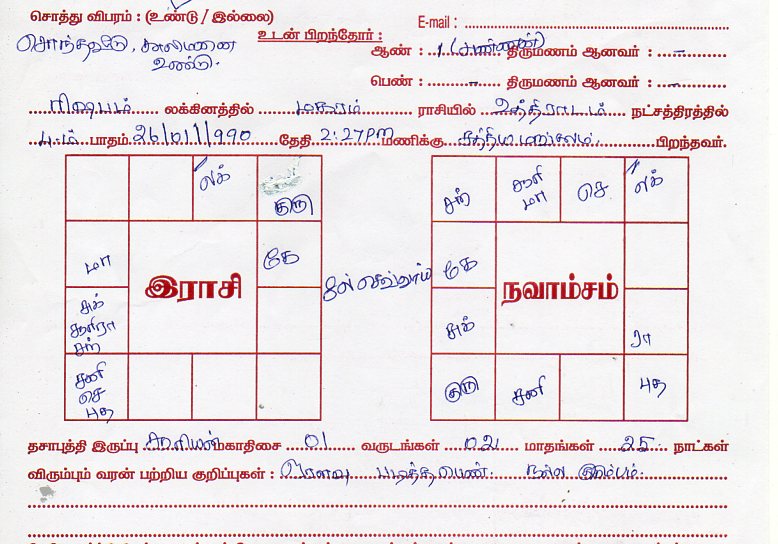 சொத்து விபரம் : (உண்டு / இல்லை)
E-mail :
சொந்தவீடு, காலிமனை
உண்டு.
உடன் பிறந்தோர் :
ஆண் : 1 திருமணம் ஆனவர் : -
பெண் : - திருமணம் ஆனவர் : -
ரிஷபம் லக்கினத்தில் மகரம் ராசியில் உத்திராடம் நட்சத்திரத்தில்
4ம் பாதம் 26/01/1990 தேதி 2:27PM மணிக்கு பிறந்தவர்.
லக்
குரு
மா
கே
சுக்
சூரிரா
சந்
சனி
செ
புத
இராசி
செவ்வாய்
சந்
சூரி
மா
செ
லக்
கே
சுக்
ரா
குரு
சனி
புத
நவாம்சம்
தசாபுத்தி இருப்பு சூரியன் மகாதிசை 01 வருடங்கள் 02 மாதங்கள் 25 நாட்கள்
விரும்பும் வரன் பற்றிய குறிப்புகள் : ஓரளவு படித்த பெண். நல்ல குடும்பம்.